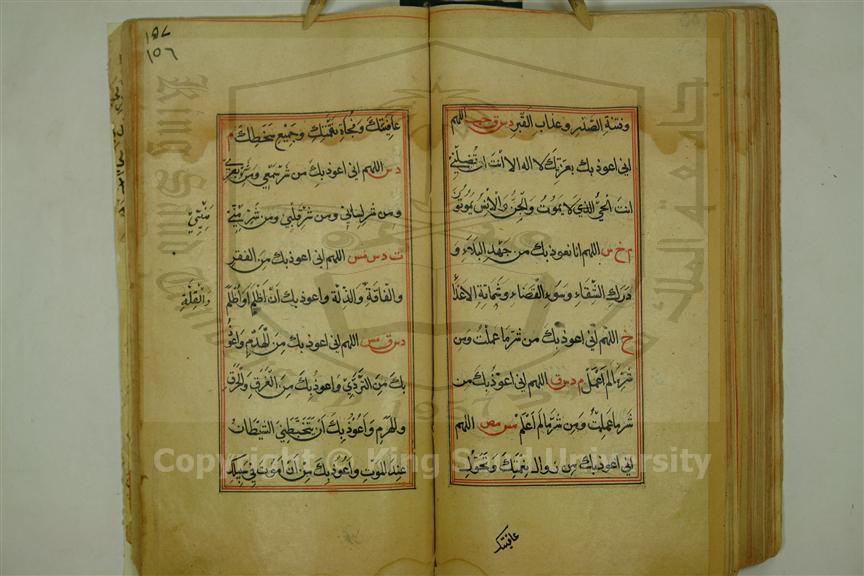 وفتنة الصدر وعذاب القبر د س ق حب اللهم
اني اعوذ بك بعزتك لا اله الا انت ان تضلني
انت الحي الذي لا يموت والجن والانس يموتون
م خ س اللهم انا نعوذ بك من جهد البلاء و
درك الشقاء وسوء القضاء وشماتة الاعداء
خ اللهم اني اعوذ بك من شر ما عملت ومن
شر ما لم اعمل م د س ق اللهم اني اعوذ بك من
شر ما عملت ومن شر ما لم اعلم س مص اللهم
اني اعوذ بك من زوال نعمتك وتحول
عافيتك
١٥٧
١٥٦
عافيتك وفجاة نقمتك وجميع سخطك م
د س اللهم اني اعوذ بك من شر سمعي ومن شر بصري
ومن شر لساني ومن شر قلبي ومن شر منيي
ت د س مس اللهم اني اعوذ بك من الفقر
والفاقة والذلة واعوذ بك ان اظلم او اظلم
د س ق مس اللهم اني اعوذ بك من الهدم واعوذ
بك من التردي واعوذ بك من الغرق والحرق
والهرم واعوذ بك ان يتخبطني الشيطان
عند الموت واعوذ بك من ان اموت في سبيلك
منيتي
والقلة
Copyright © King Saud University
King Saud University
جامعة الملك سعود
1957